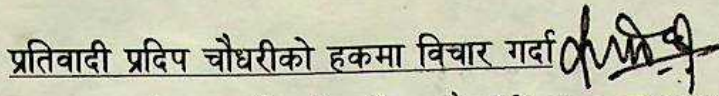 प्रतिवादी प्रदिप चौधरीको हकमा विचार गर्दा